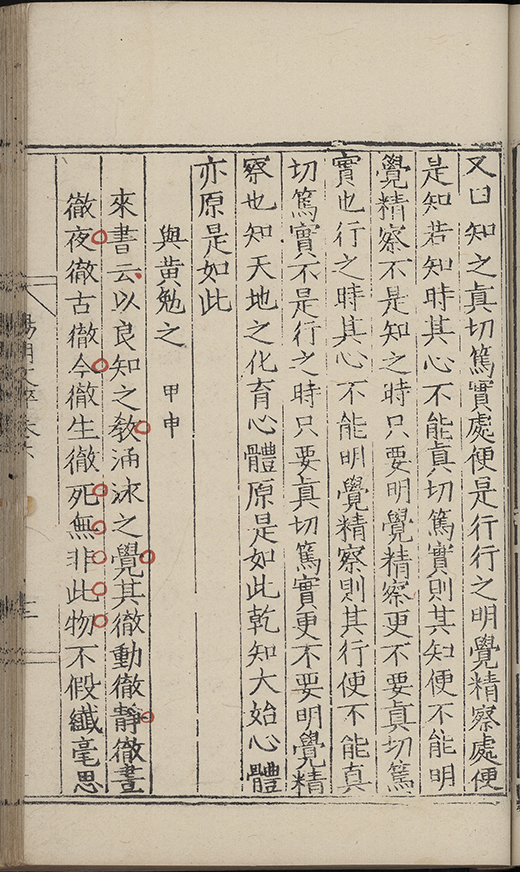 又曰知之眞切篤實處便是行行之明覺精察處便
是知若知時其心不能眞切篤實則其知便不能明
覺精察不是知之時只要明覺精察更不要眞切篤
實也行之時其心不能明覺精察則其行便不能眞
切篤實不是行之時只要眞切篤實更不要明覺精
察也知天地之化育心體原是如此乾知大始心體
亦原是如此
與黄勉之 甲申
來書云以良知之敎涵泳之覺其徹動徹靜徹晝
徹夜徹古徹今徹生徹死無非此物不假纖毫思